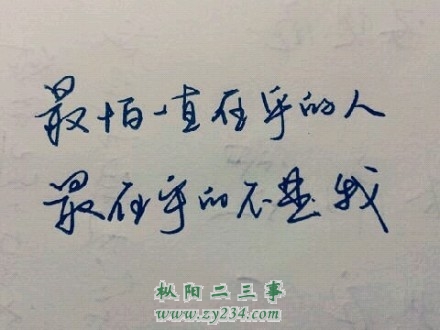 最怕一直在乎的人
最在乎的不是我
枞阳二三事
www.zy234.com